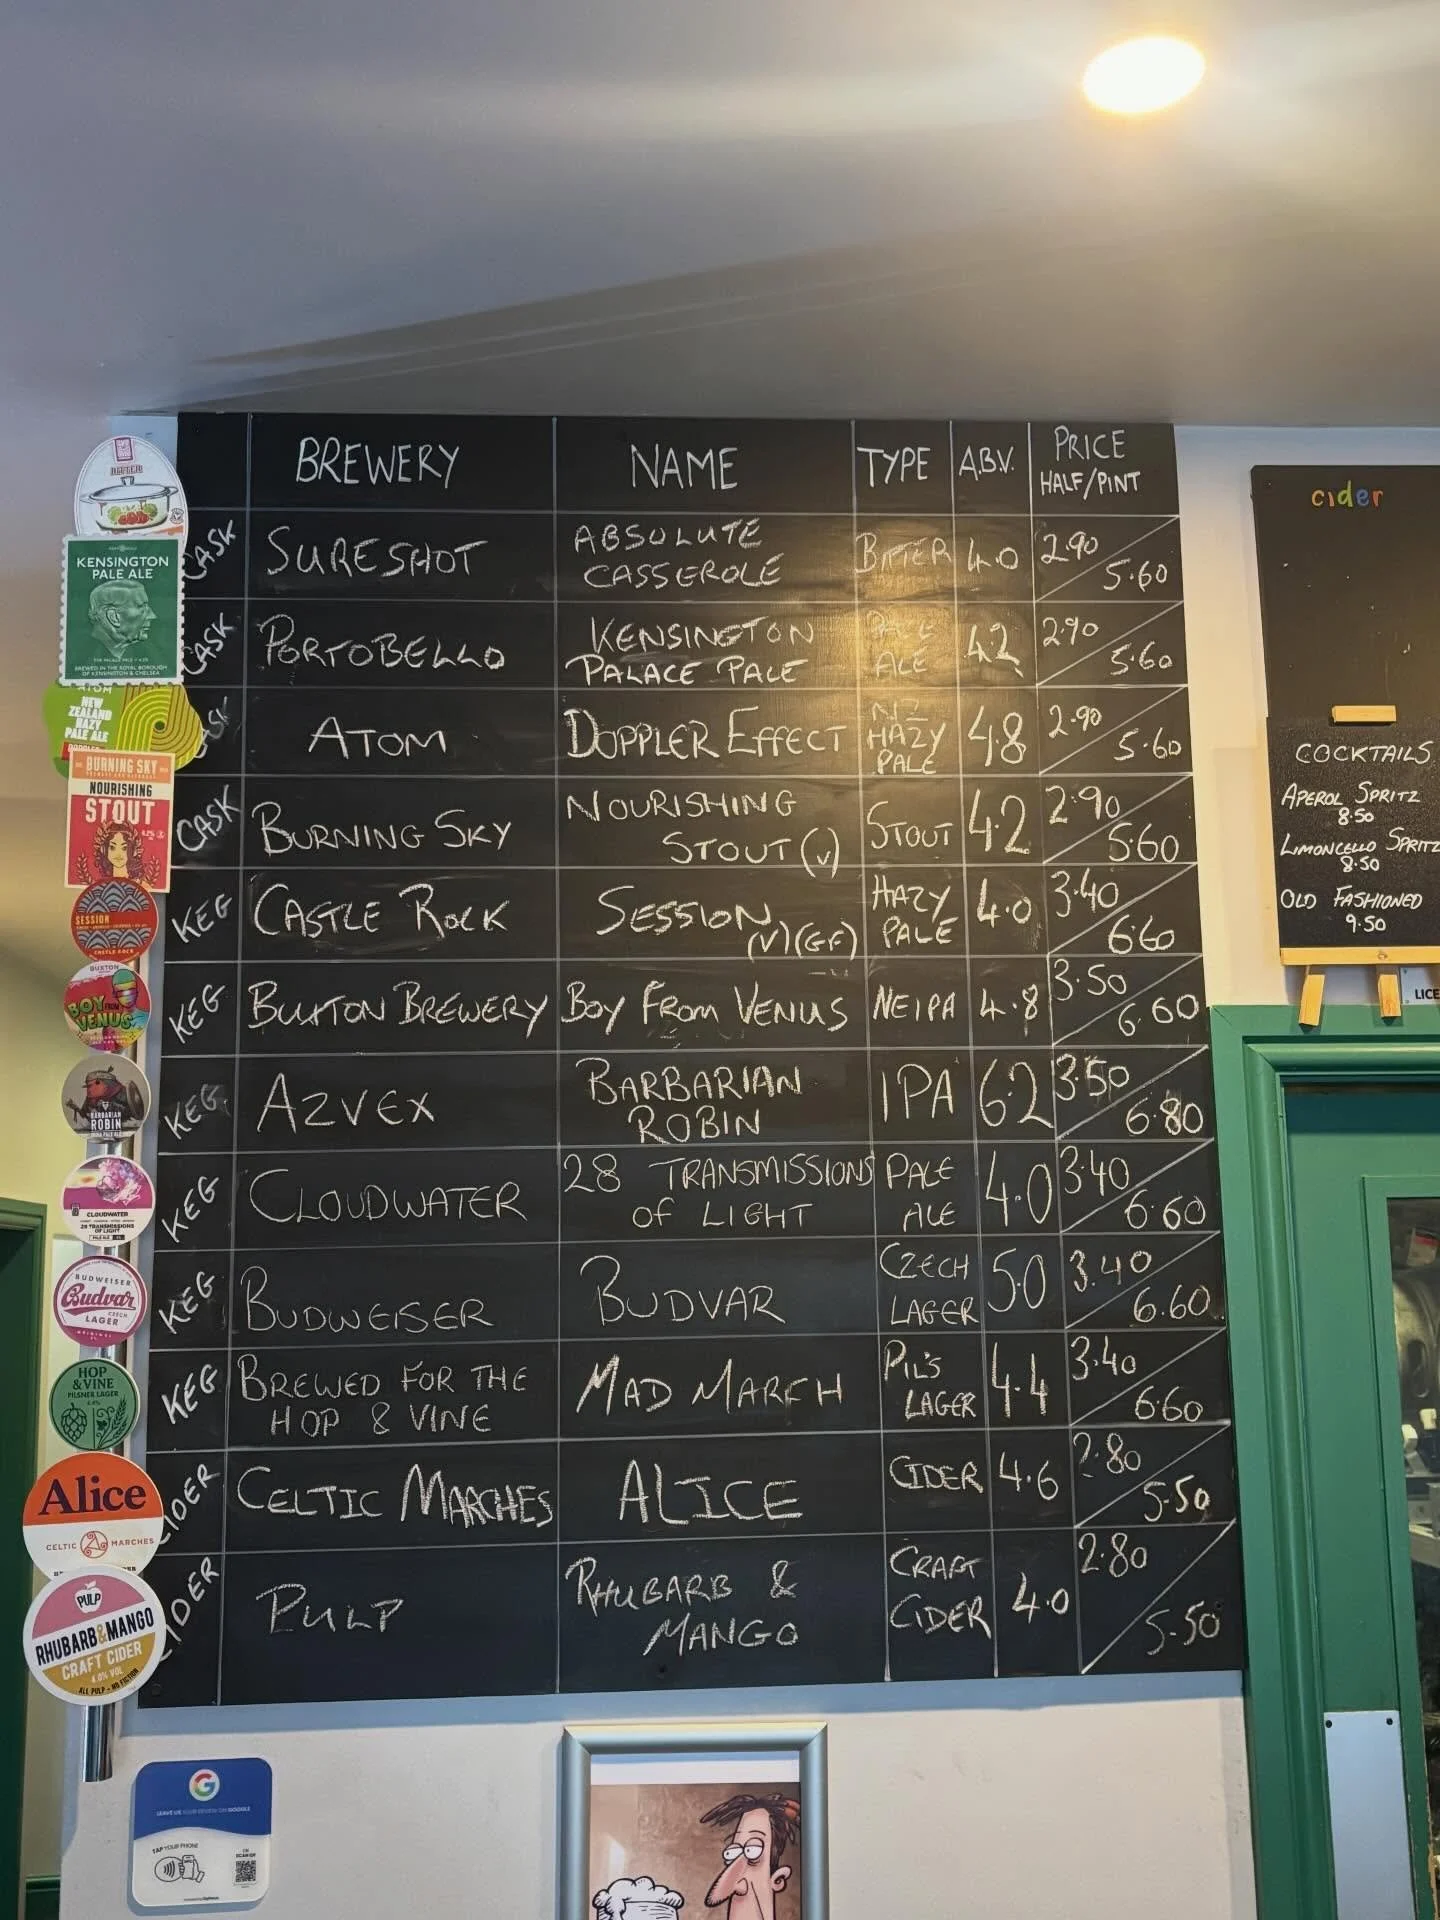 BREWERY NAME TYPE A.B.V. PRICE
HALF/PINT
CASK SURESHOT ABSOLUTE CASSEROLE BITTER 4.0 2.90 5.60
CASK PORTOBELLO KENSINGTON PALACE PALE PALE ALE 4.2 2.90 5.60
CASK ATOM DOPPLER EFFECT NZ HAZY PALE 4.8 2.90 5.60
CASK BURNING SKY NOURISHING STOUT (V) STOUT 4.2 2.90 5.60
KEG CASTLE ROCK SESSION (V)(GF) HAZY PALE 4.0 3.40 6.60
KEG BUXTON BREWERY BOY FROM VENUS NEIPA 4.8 3.50 6.60
KEG AZVEX BARBARIAN ROBIN IPA 6.2 3.50 6.80
KEG CLOUDWATER 28 TRANSMISSIONS OF LIGHT PALE ALE 4.0 3.40 6.60
KEG BUDWEISER BUDVAR CZECH LAGER 5.0 3.40 6.60
KEG BREWED FOR THE HOP & VINE MAD MARCH PILS LAGER 4.4 3.40 6.60
CIDER CELTIC MARCHES ALICE CIDER 4.6 2.80 5.50
CIDER PULP RHUBARB & MANGO CRAFT CIDER 4.0 2.80 5.50
BITTER
KENSINGTON
PALE ALE
BREWED IN THE ROYAL BOROUGH
OF KENSINGTON & CHELSEA
ATOM
NEW
ZEALAND
HAZY
PALE ALE
DOPPLER
BURNING SKY
NOURISHING
STOUT
4.2%
SESSION
CASTLE ROCK
BUXTON
BOY FROM
VENUS
BARBARIAN
ROBIN
CLOUDWATER
28 TRANSMISSIONS
OF LIGHT
PALE ALE
BUDWEISER
Budvar
CZECH
LAGER
ORIGINAL
HOP
&VINE
PILSNER LAGER
4.4%
Alice
CELTIC MARCHES
PULP
RHUBARB&MANGO
CRAFT CIDER
4.0% VOL
ALL PULP - NO FICTION
cider
COCKTAILS
APEROL SPRITZ
8.50
LIMONCELLO SPRITZ
8.50
OLD FASHIONED
9.50
LICE
G
LEAVE US YOUR REVIEW ON GOOGLE
TAP YOUR PHONE
OR
SCAN QR